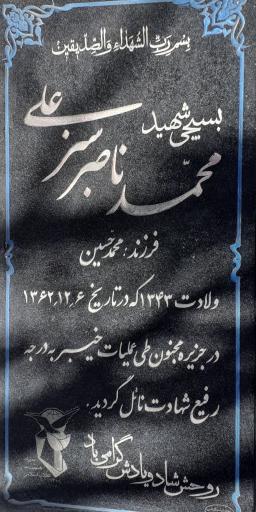 بسم رب الشهداء والصدیقین
بسیجی شهید
محمد ناصر سبزعلی
فرزند: محمدحسین
ولادت ۱۳۴۳ که در تاریخ ۱۳۶۲,۱۲,۶
در جزیره مجنون طی عملیات خیبر به درجه
رفیع شهادت نائل گردید.
روحش شاد و یادش گرامی باد